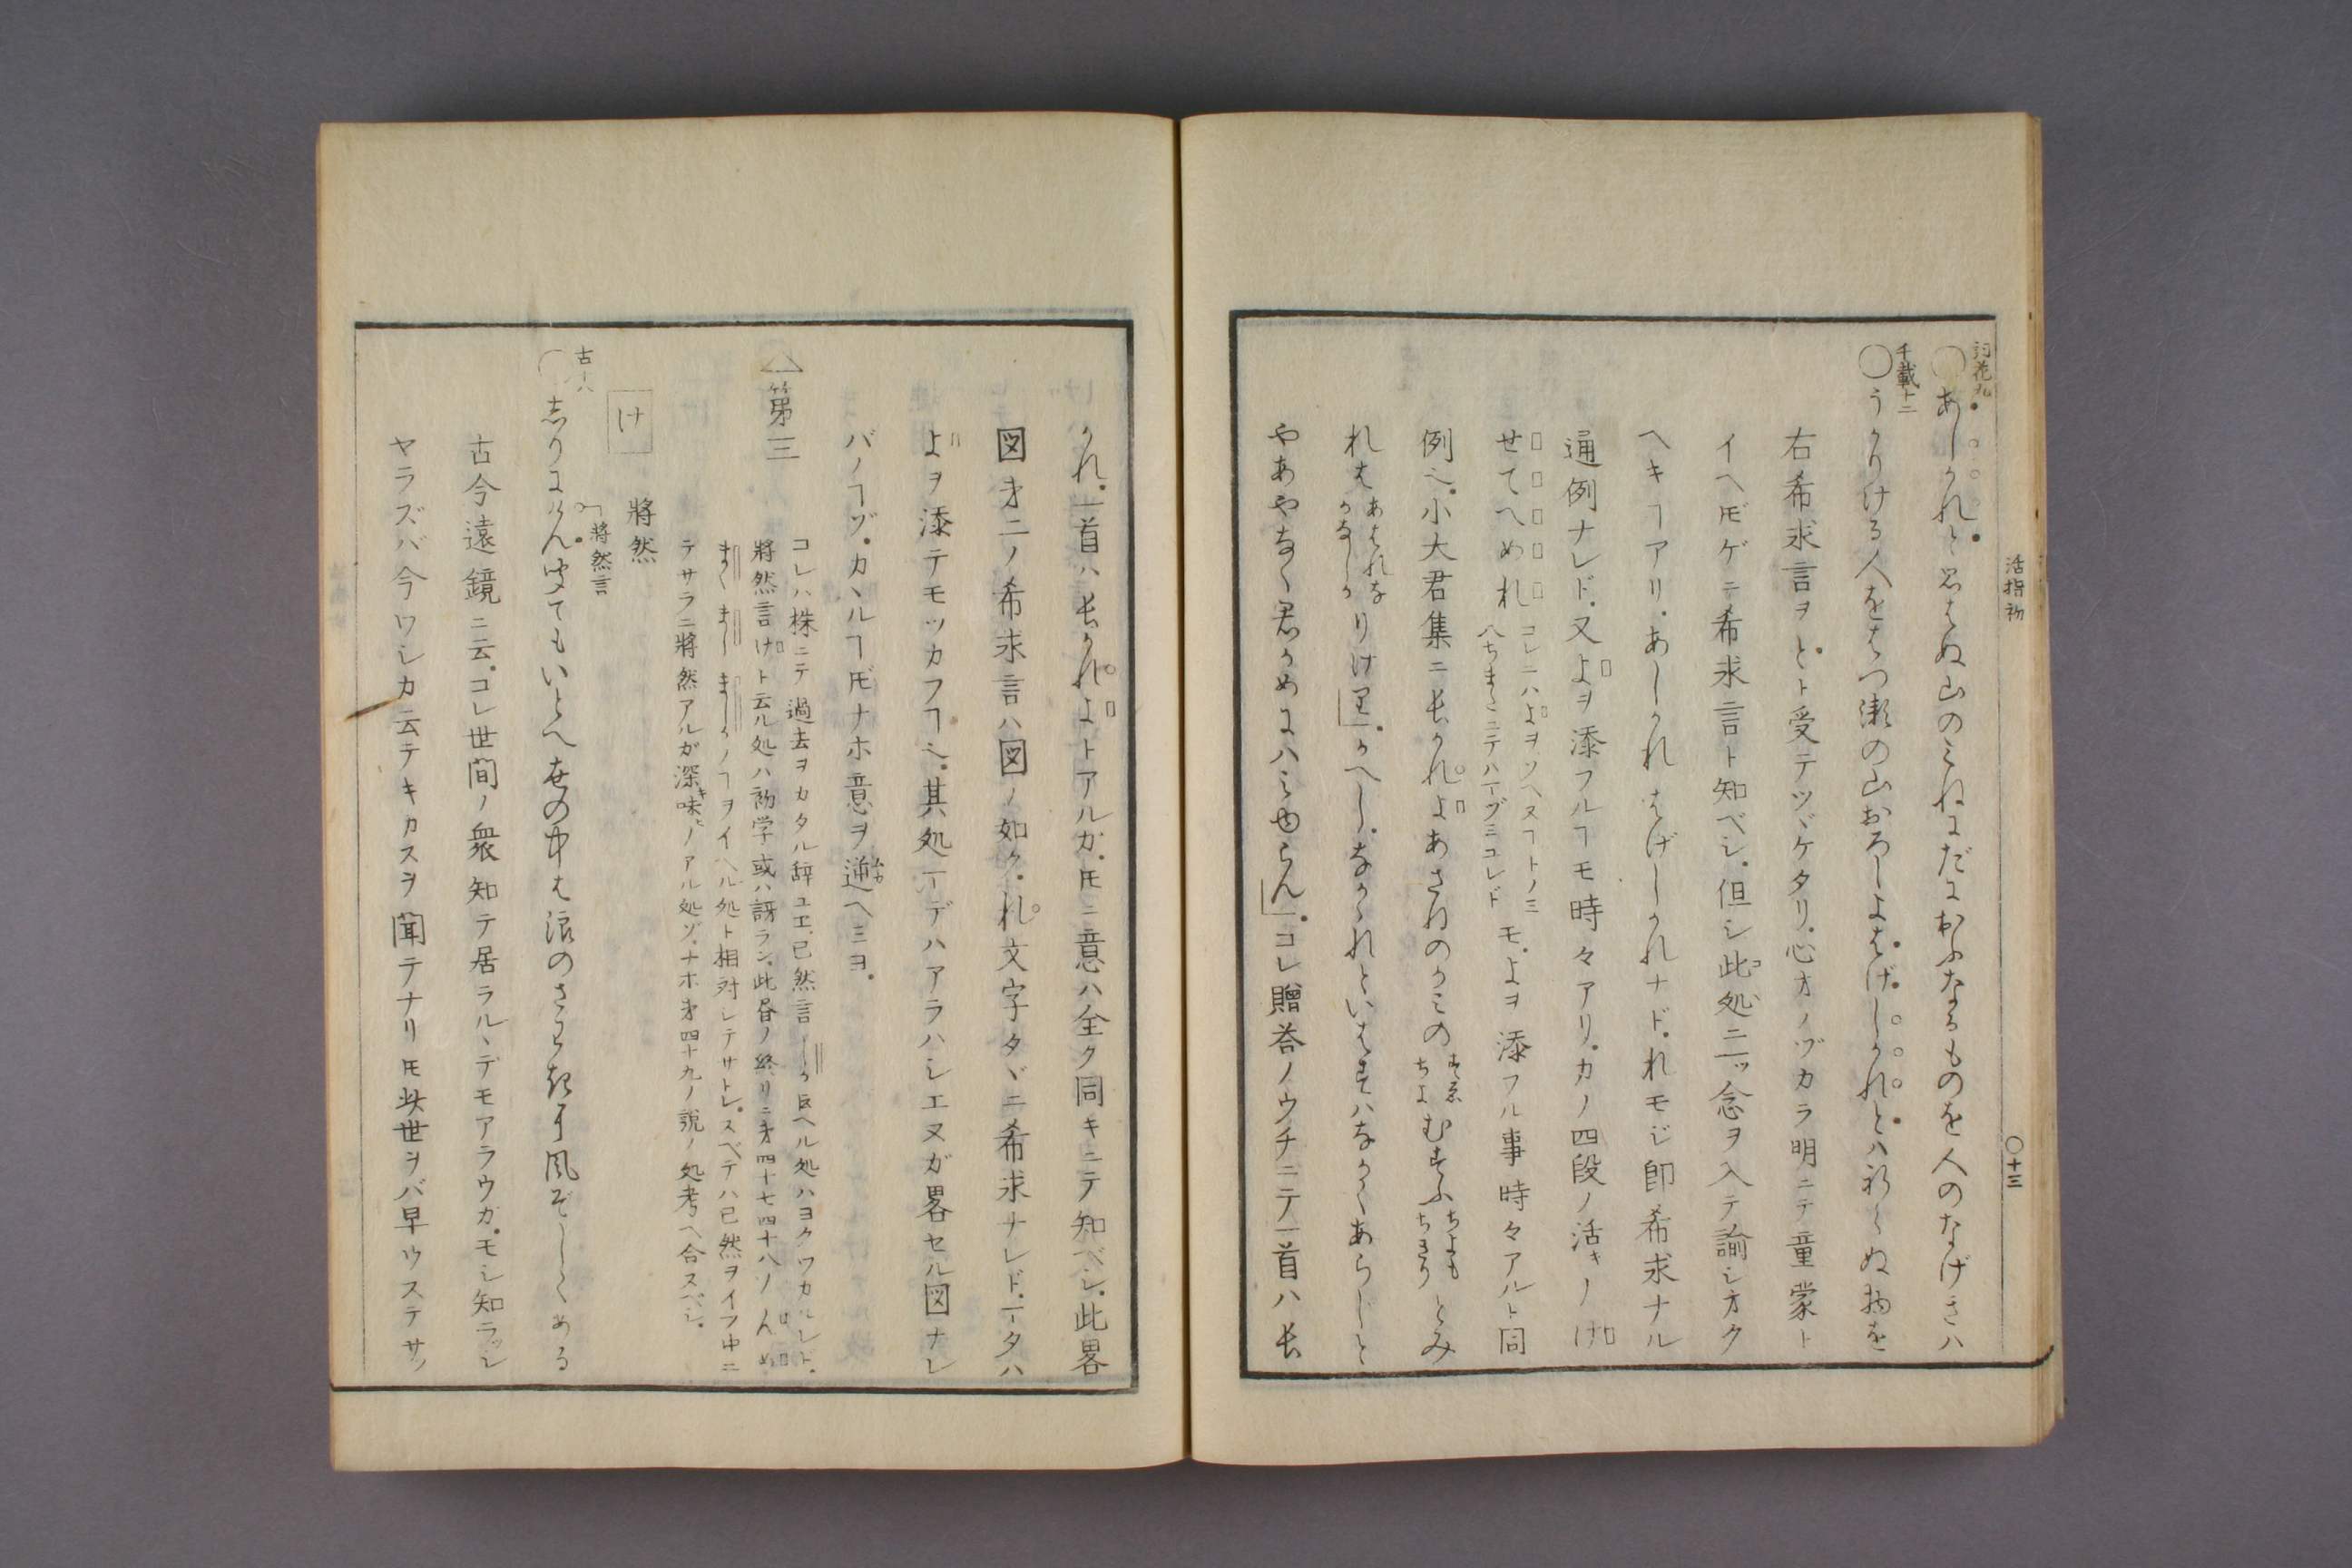 活指初
〇十三
詞花九
〇あしかれと思はぬ山のみねにだにおふなるものを人のなげきハ
千載十二
〇うかりける人をはつ瀬の山おろしよはげしかれとハ祈らぬ物を
右希求言ヲとト受テツヾケタリ。心オノヅカラ明ニテ童蒙ト
イヘドモゲニ希求言ト知ベシ。但シ此処ニ一ッ念ヲ入テ諭シオク
ヘキヿアリ。あしかれはげしかれナド。れモジ即希求ナル
通例ナレド。又よヲ添フルヿモ時々アリ。カノ四段ノ活キノけ
せてへめれ
コレニハよヲソヘヌヿトノミ
八ちまたニテハイヅミコレド
モ。よヲ添フル事時々アルト同
例也。小大君集ニ長かれよあさねのかみの
むすふ
ちよも
ちきり
とみ
れは
あはれな
かなしか
りけ里」。かへし。なかゝれといはすハなかくあらしと
やあやなく君かめにハみゆらん」。コレ贈答ノウチニテ一首ハ長
かれ。一首ハ長かれよトアルガ。トモニ意ハ全ク同キニテ知ベシ。此畧
図才二ノ希求言ハ図ノ如ク。れ文字タヾニ希求ナレド。イタハ
よヲ添テモツカフヿ也。其処マデハアラハシエヌガ畧セル図ナレ
バノヿゾ。カヽルヿドモナホ意ヲ逆ヘミヨ。
△第三
コレハ株ニテ過去ヲカタル辞ユエ。已然言しか
ヘル処ハヨクワカルレド。
將然言けト云ル処ハ初学或ハ訝ラン。此昏ノ終リニ才四十七四十八ノんめ
まくましましかノヿヲイヘル処ト相対シテサトレ。スベテハ已然ヲイフ中ニ
テサラニ將然アルガ深キ味ヒノアル処ゾ。ナホ才四十九ノ説ノ処考ヘ合スベシ。
け
將然
古十八
「將然言
〇志りにけん聞てもいとへ世の中は浪のさわきに風そしくめる
古今遠鏡ニ云。コレ世間ノ衆知テ居ラルヽデモアラウガ。モシ知ラッシ
ヤラズバ今ワシカ云テキカスヲ聞テナリトモ此世ヲバ早ウステサッ